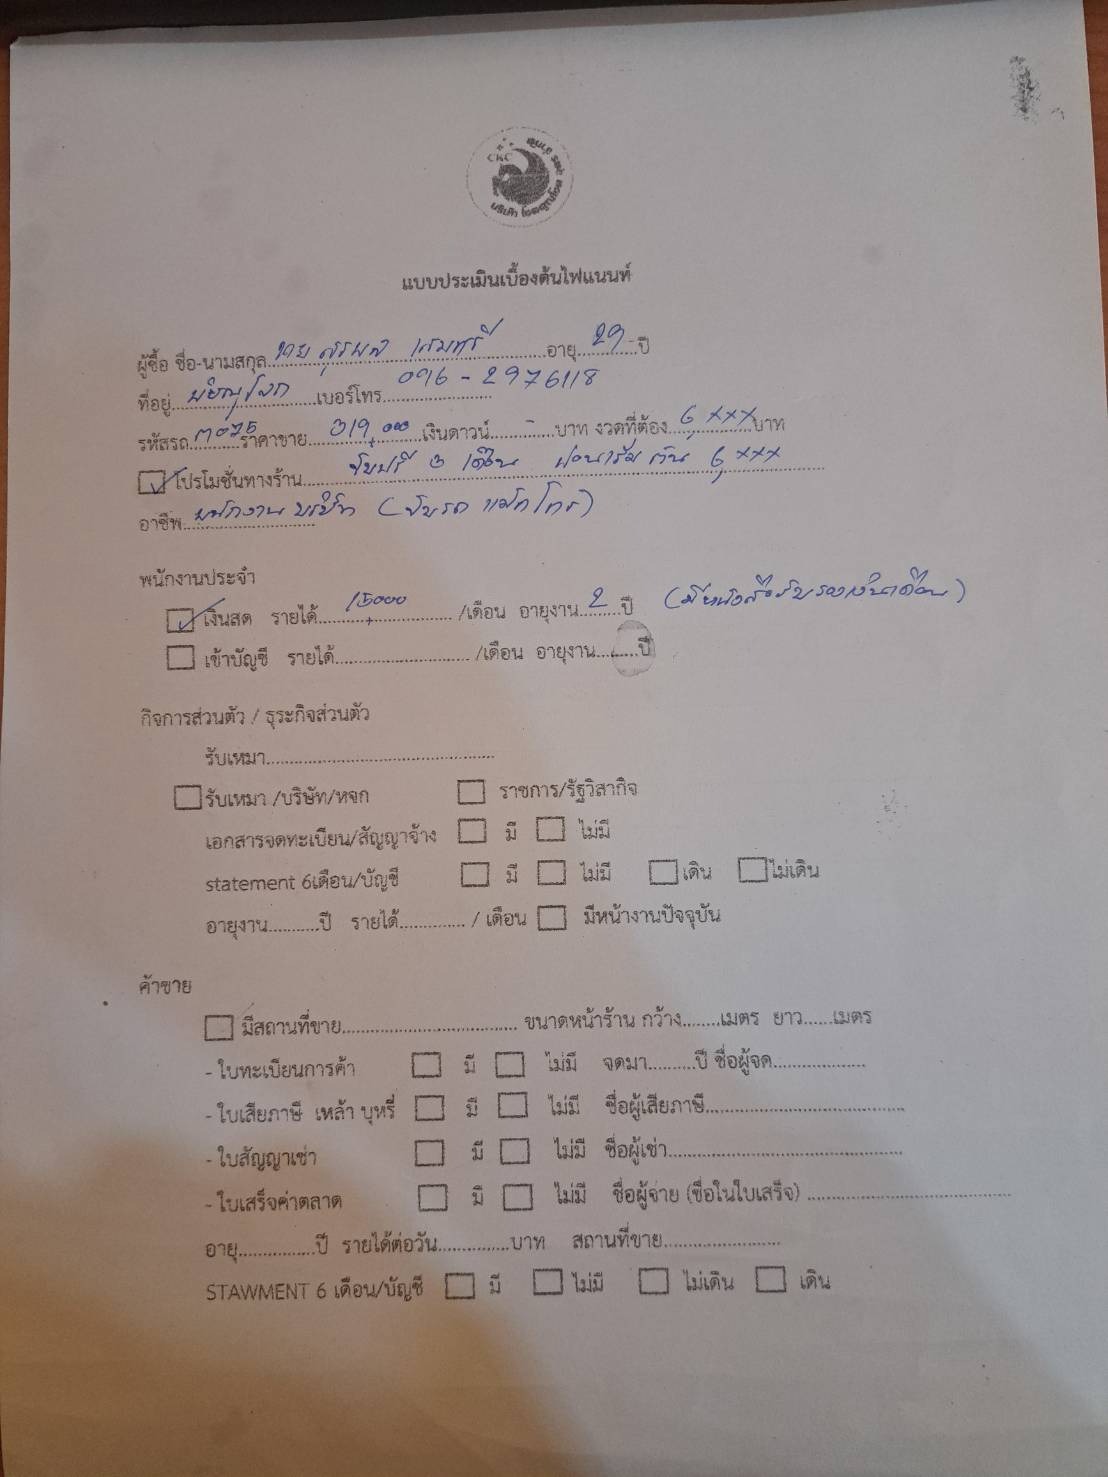 CKC
แบบประเมินเบื้องต้นไฟแนนท์
ผู้ซื้อ ชื่อ-นามสกุล นาย สุรพล อายุ 29 ปี
ที่อยู่ พิษณุโลก เบอร์โทร 096-2976118
รหัสรถ ก075 ราคาขาย 319,000 เงินดาวน์ - บาท งวดที่ต้อง 6,xxx บาท
โปรโมชั่นทางร้าน ขับฟรี 3 เดือน ผ่อนเริ่มต้น 6,xxx
อาชีพ พนักงานบริษัท (ขับรถ แม็คโคร)
พนักงานประจำ
เงินสด รายได้ 15,000 /เดือน อายุงาน 2 ปี (มีหนังสือรับรองเงินเดือน)
เข้าบัญชี รายได้ /เดือน อายุงาน ปี
กิจการส่วนตัว / ธุระกิจส่วนตัว
รับเหมา
รับเหมา /บริษัท/หจก ราชการ/รัฐวิสากิจ
เอกสารจดทะเบียน/สัญญาจ้าง มี ไม่มี
statement 6เดือน/บัญชี มี ไม่มี เดิน ไม่เดิน
อายุงาน ปี รายได้ / เดือน มีหน้างานปัจจุบัน
ค้าขาย
มีสถานที่ขาย ขนาดหน้าร้าน กว้าง เมตร ยาว เมตร
- ใบทะเบียนการค้า มี ไม่มี จดมา ปี ชื่อผู้จด
- ใบเสียภาษี เหล้า บุหรี่ มี ไม่มี ชื่อผู้เสียภาษี
- ใบสัญญาเช่า มี ไม่มี ชื่อผู้เช่า
- ใบเสร็จค่าตลาด มี ไม่มี ชื่อผู้จ่าย (ชื่อในใบเสร็จ)
อายุ ปี รายได้ต่อวัน บาท สถานที่ขาย
STAWMENT 6 เดือน/บัญชี มี ไม่มี ไม่เดิน เดิน